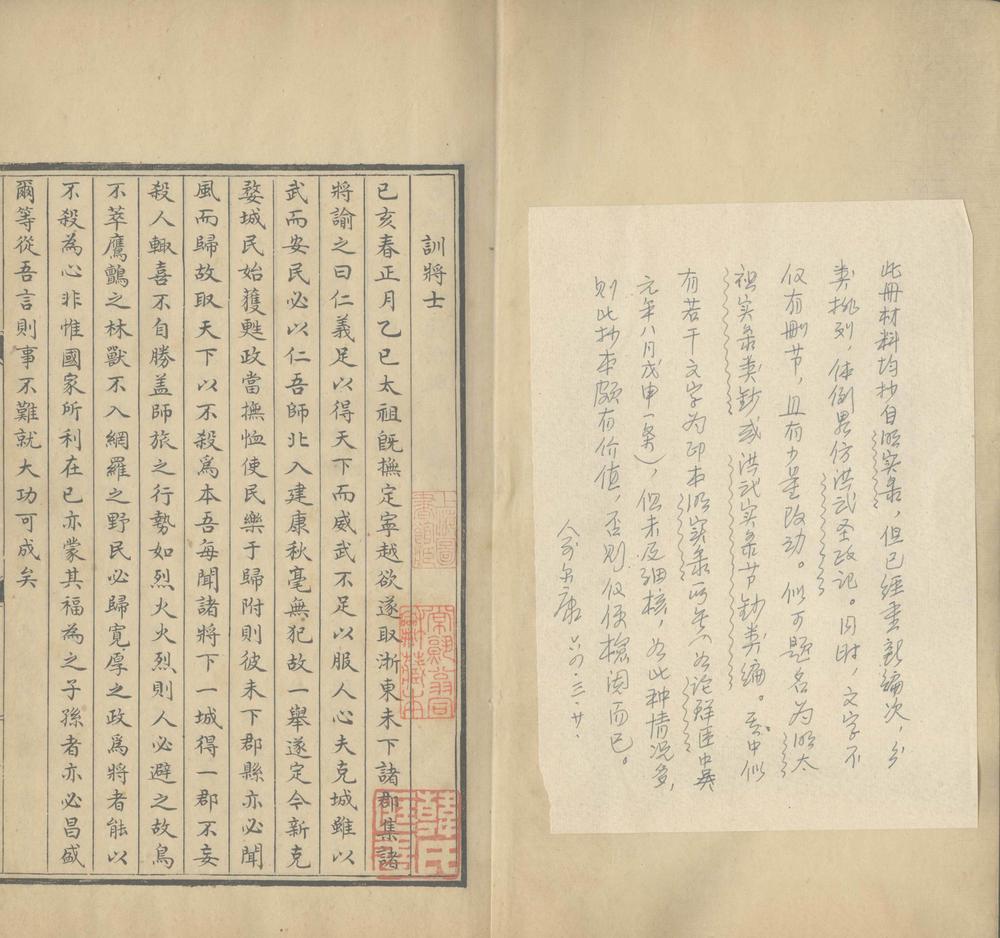 此册材料均抄自明实录，但已经重新编次，分
类排列，体例略仿洪武圣政记。同时，文字不
仅有删节，且有少量改动。似可题名为明太
祖实录类钞或洪武实录节钞类编。其中似
有若干文字为印本明实录所无（如论鲜匡中吴
元年八月戊申一条），但未及细核，如此种情况多，
则此抄本颇有价值，否则仅便检阅而已。
六四·三·廿·
訓將士
已亥春正月乙巳太祖旣撫定寧越欲遂取浙東未下諸郡集諸
將諭之曰仁義足以得天下而威武不足以服人心夫克城雖以
武而安民必以仁吾師北入建康秋毫無犯故一舉遂定今新克
婺城民始獲甦政當撫恤使民樂于歸附則彼未下郡縣亦必聞
風而歸故取天下以不殺爲本吾每聞諸將下一城得一郡不妄
殺人輙喜不自勝盖師旅之行勢如烈火火烈則人必避之故鳥
不萃鷹鸇之林獸不入網羅之野民必歸寬厚之政爲將者能以
不殺為心非惟國家所利在已亦蒙其福為之子孫者亦必昌盛
爾等從吾言則事不難就大功可成矣